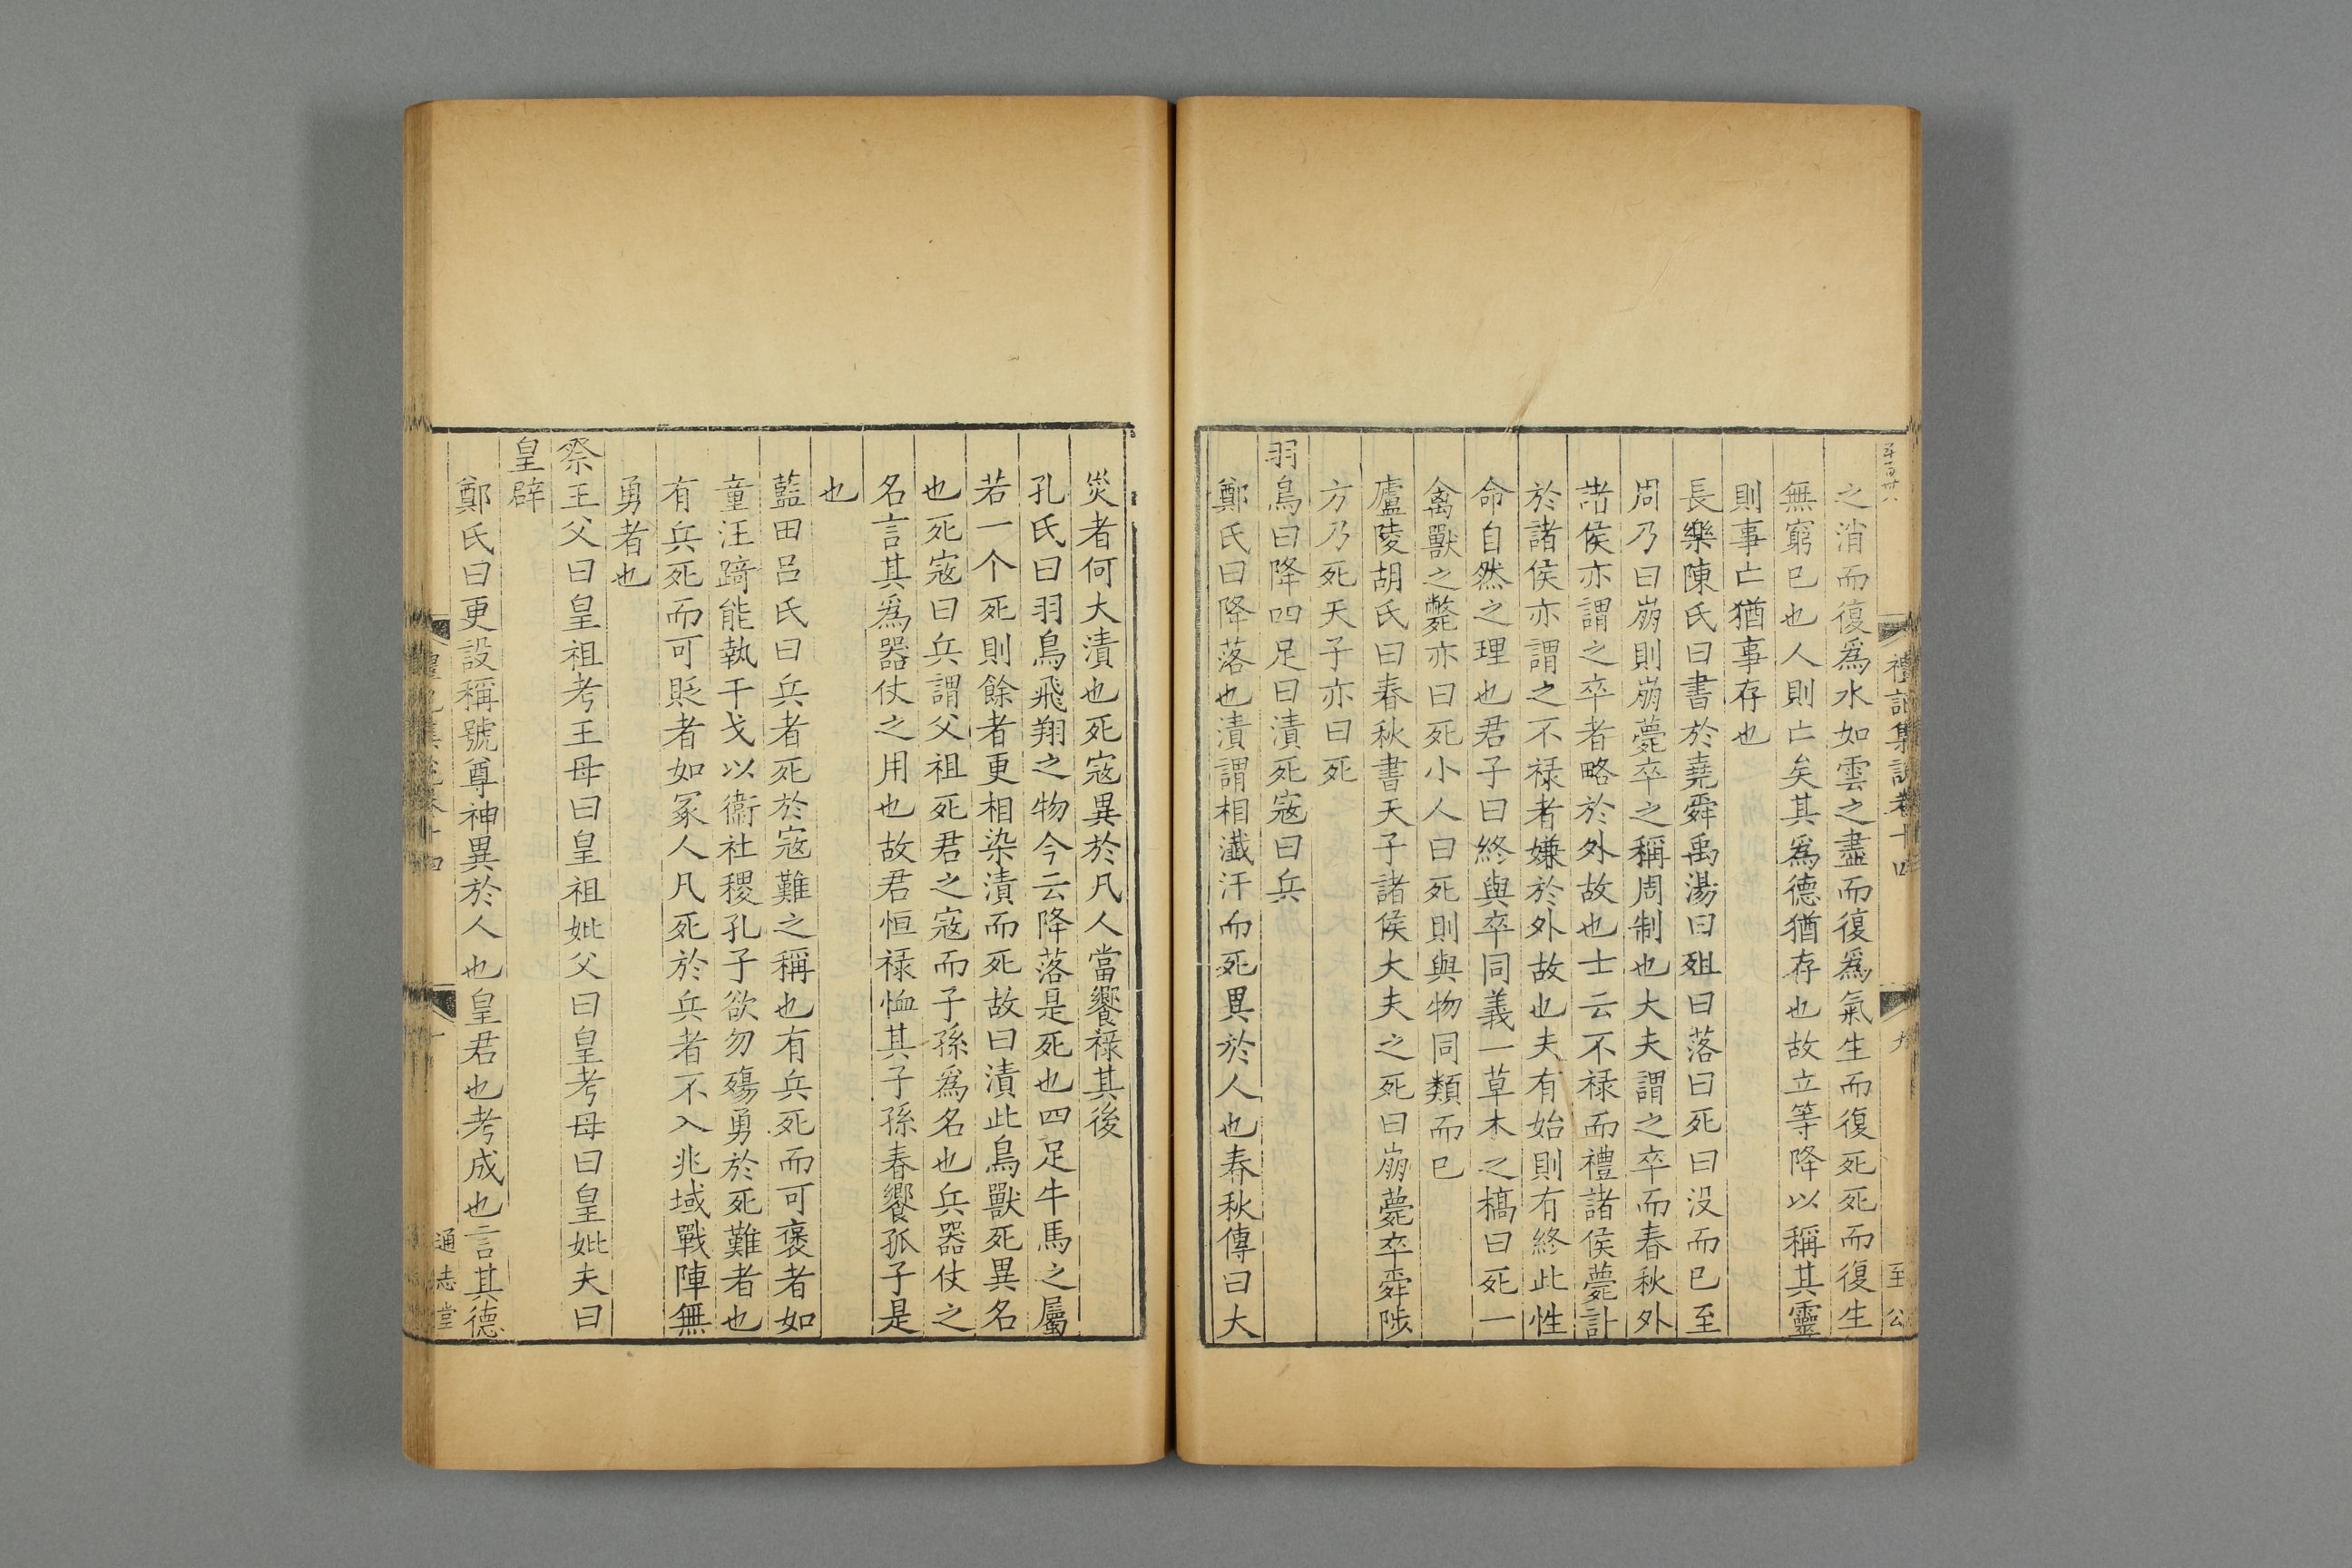 禮記集說卷十四
九
至公
之消而復爲水如雲之盡而復爲氣生而復死死而復生
無窮已也人則亡矣其爲德猶存也故立等降以稱其靈
則事亡猶事存也
長樂陳氏曰書於堯舜禹湯曰殂曰落曰死曰没而已至
周乃曰崩則崩薨卒之稱周制也大夫謂之卒而春秋外
諸侯亦謂之卒者略於外故也士云不禄而禮諸侯薨訃
於諸侯亦謂之不禄者嫌於外故也夫有始則有終此性
命自然之理也君子曰終與卒同義一草木之槁曰死一
禽獸之斃亦曰死小人曰死則與物同類而已
廬陵胡氏曰春秋書天子諸侯大夫之死曰崩薨卒舜陟
方乃死天子亦曰死
羽鳥曰降四足曰漬死寇曰兵
鄭氏曰降落也漬謂相瀸汙而死異於人也春秋傳曰大
災者何大漬也死寇異於凡人當饗禄其後
孔氏曰羽鳥飛翔之物今云降落是死也四足牛馬之屬
若一个死則餘者更相染漬而死故曰漬此鳥獸死異名
也死寇曰兵謂父祖死君之寇而子孫爲名也兵器仗之
名言其爲器仗之用也故君恒禄恤其子孫春饗孤子是
也
藍田吕氏曰兵者死於寇難之稱也有兵死而可褒者如
童汪踦能執干戈以衛社稷孔子欲勿殤勇於死難者也
有兵死而可貶者如冢人凡死於兵者不入兆域戰陣無
勇者也
祭王父曰皇祖考王母曰皇祖妣父曰皇考母曰皇妣夫曰
皇辟
鄭氏曰更設稱號尊神異於人也皇君也考成也言其德
禮記集說卷十四
十
通志堂